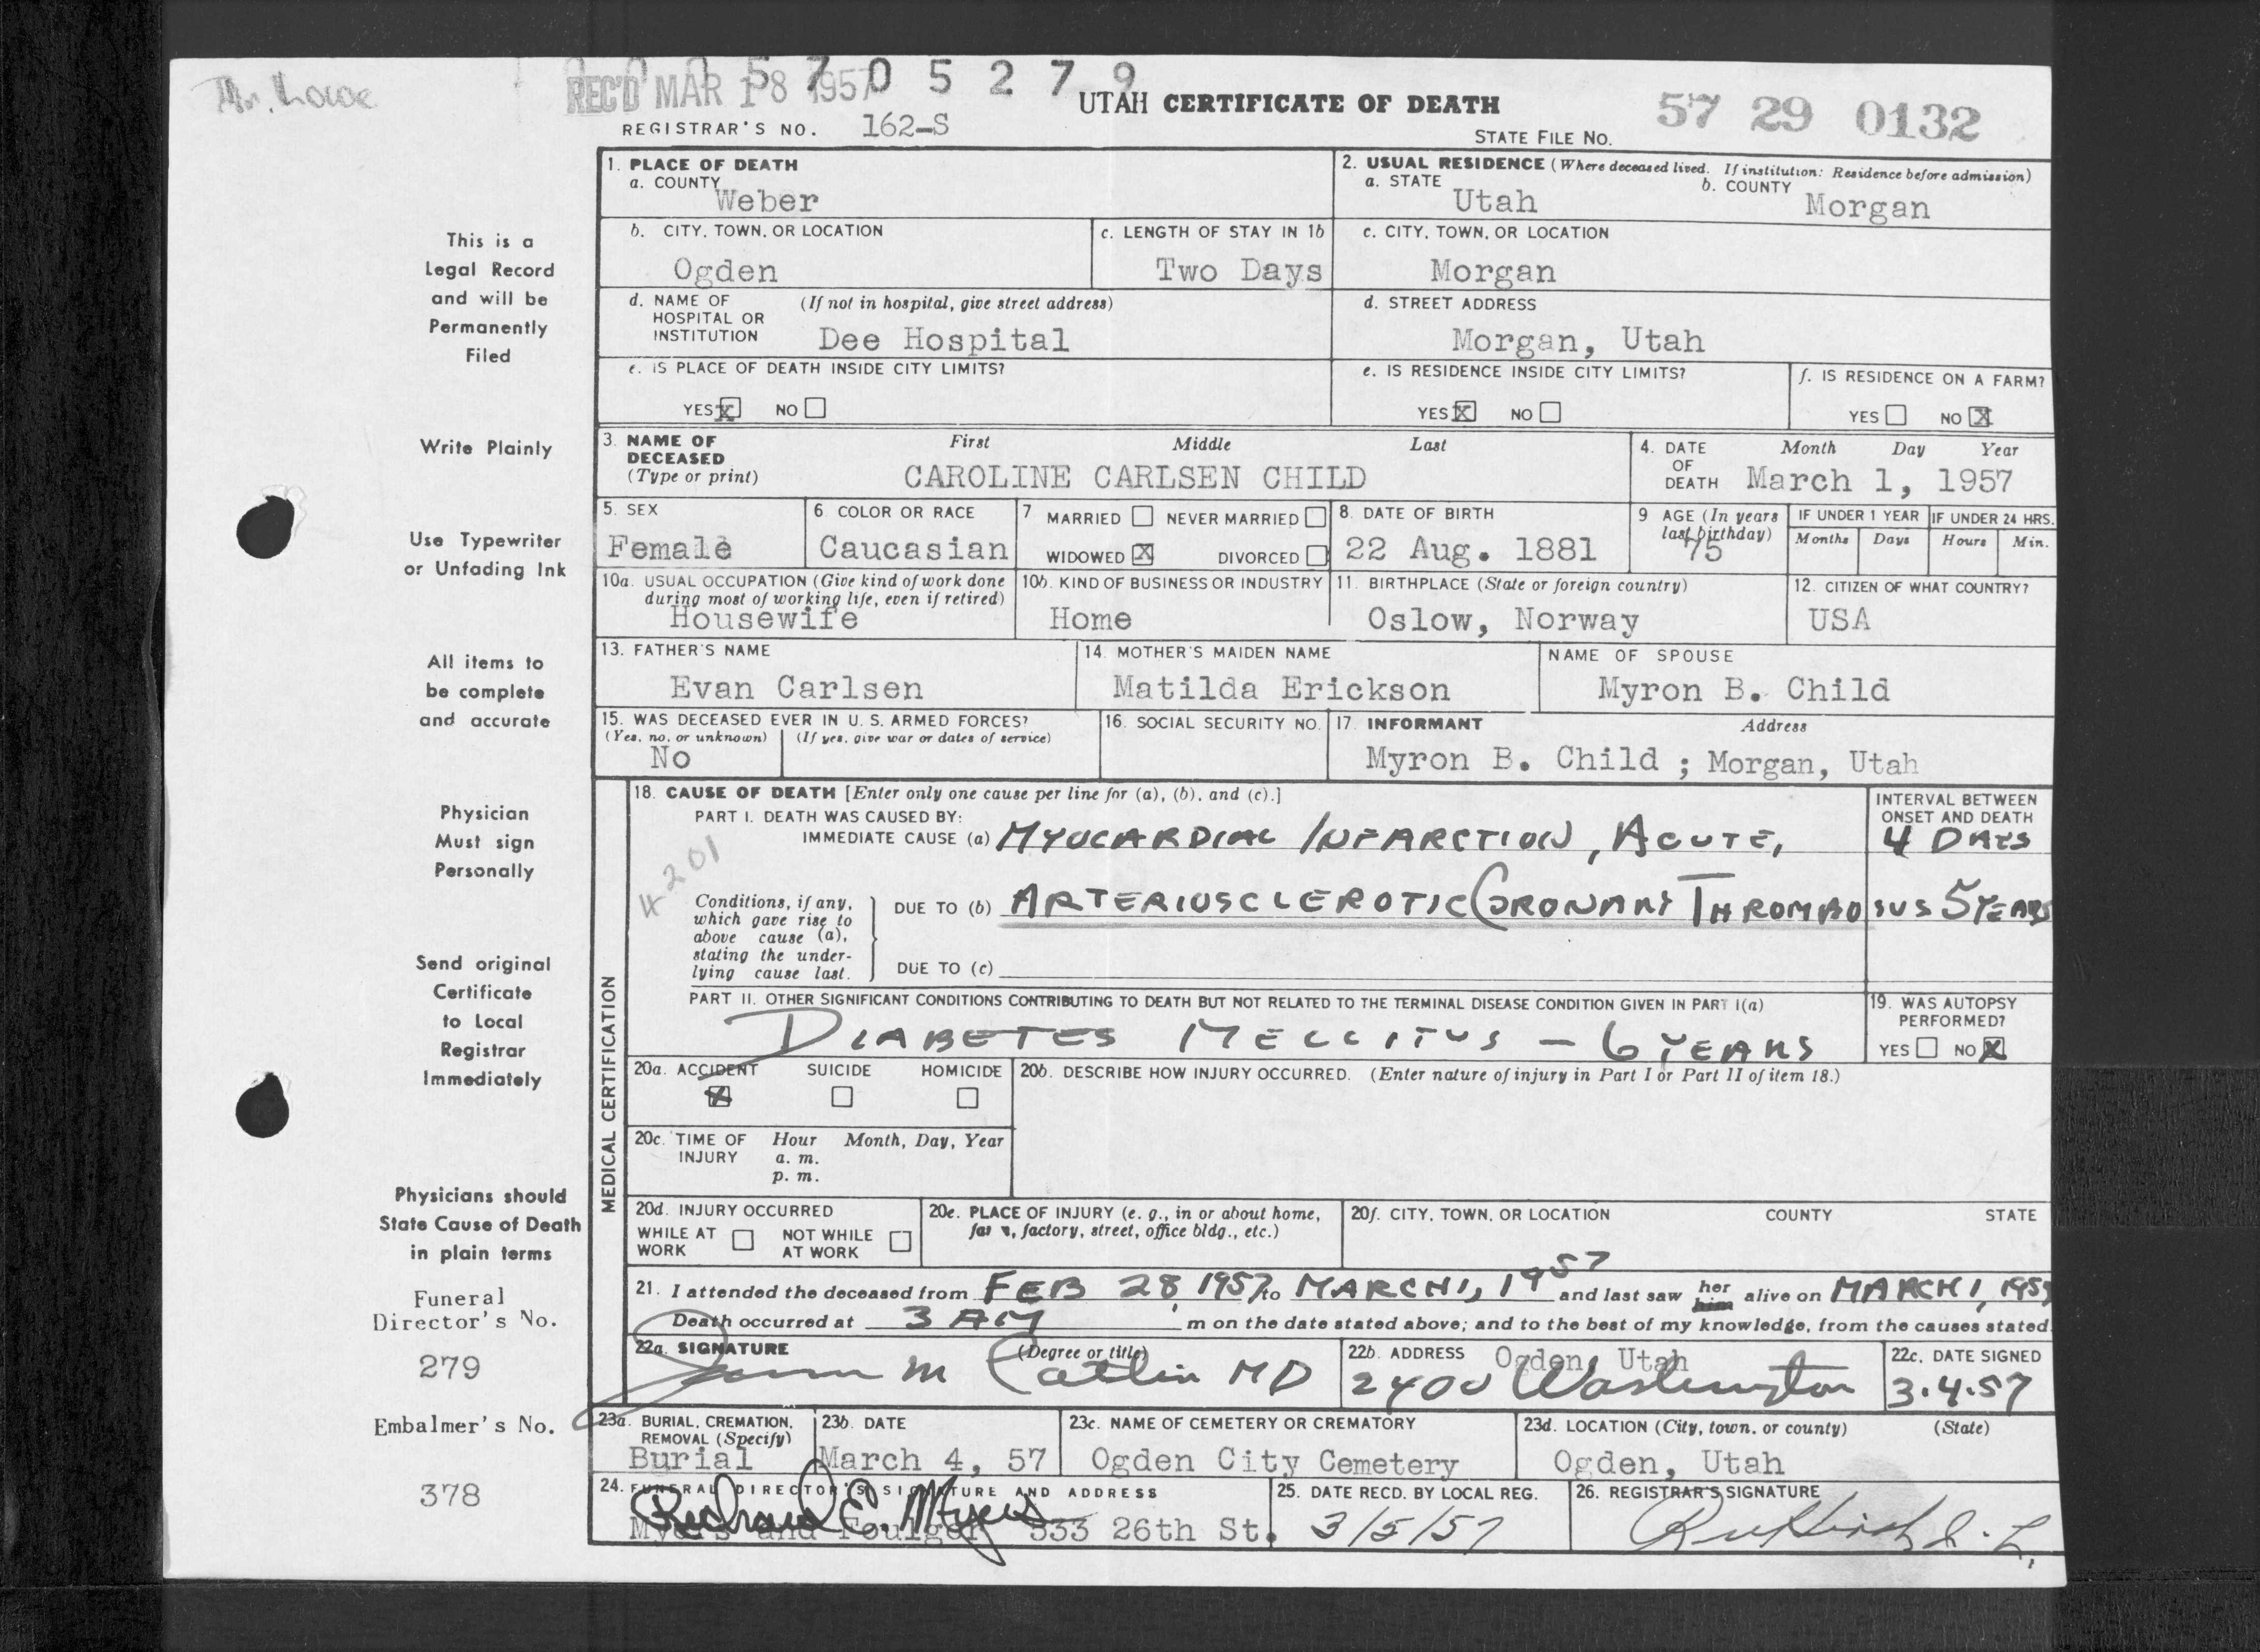 Mr. Lowe
REC'D MAR 18 1957
5 7 0 5 2 7 9
UTAH CERTIFICATE OF DEATH
57 29 0132
REGISTRAR'S NO. 162-S
STATE FILE NO.
1. PLACE OF DEATH
a. COUNTY
Weber
2. USUAL RESIDENCE (Where deceased lived. If institution: Residence before admission)
a. STATE
Utah
b. COUNTY
Morgan
b. CITY, TOWN, OR LOCATION
Ogden
c. LENGTH OF STAY IN 1b
Two Days
c. CITY, TOWN, OR LOCATION
Morgan
d. NAME OF HOSPITAL OR INSTITUTION
(If not in hospital, give street address)
Dee Hospital
d. STREET ADDRESS
Morgan, Utah
e. IS PLACE OF DEATH INSIDE CITY LIMITS?
YES X NO
e. IS RESIDENCE INSIDE CITY LIMITS?
YES X NO
f. IS RESIDENCE ON A FARM?
YES NO X
3. NAME OF DECEASED
(Type or print)
First Middle Last
CAROLINE CARLSEN CHILD
4. DATE OF DEATH
Month Day Year
March 1, 1957
5. SEX
Female
6. COLOR OR RACE
Caucasian
7 MARRIED NEVER MARRIED
WIDOWED X DIVORCED
8. DATE OF BIRTH
22 Aug. 1881
9 AGE (In years last birthday)
75
IF UNDER 1 YEAR
Months Days
IF UNDER 24 HRS.
Hours Min.
10a. USUAL OCCUPATION (Give kind of work done during most of working life, even if retired)
Housewife
10b. KIND OF BUSINESS OR INDUSTRY
Home
11. BIRTHPLACE (State or foreign country)
Oslow, Norway
12. CITIZEN OF WHAT COUNTRY?
USA
13. FATHER'S NAME
Evan Carlsen
14. MOTHER'S MAIDEN NAME
Matilda Erickson
NAME OF SPOUSE
Myron B. Child
15. WAS DECEASED EVER IN U. S. ARMED FORCES?
(Yes, no, or unknown) (If yes, give war or dates of service)
No
16. SOCIAL SECURITY NO.
17. INFORMANT Address
Myron B. Child ; Morgan, Utah
MEDICAL CERTIFICATION
18. CAUSE OF DEATH [Enter only one cause per line for (a), (b), and (c).]
PART I. DEATH WAS CAUSED BY:
IMMEDIATE CAUSE (a) MYOCARDIAL INFARCTION, ACUTE,
INTERVAL BETWEEN ONSET AND DEATH
4 DAYS
4201
Conditions, if any, which gave rise to above cause (a), stating the underlying cause last.
DUE TO (b) ARTERIOSCLEROTIC CORONARY THROMBOSUS 5 YEARS
DUE TO (c)
PART II. OTHER SIGNIFICANT CONDITIONS CONTRIBUTING TO DEATH BUT NOT RELATED TO THE TERMINAL DISEASE CONDITION GIVEN IN PART I(a)
DIABETES MELLITUS - 6 YEARS
19. WAS AUTOPSY PERFORMED?
YES NO X
20a. ACCIDENT SUICIDE HOMICIDE
20b. DESCRIBE HOW INJURY OCCURRED. (Enter nature of injury in Part I or Part II of item 18.)
20c. TIME OF INJURY
Hour Month, Day, Year
a. m.
p. m.
20d. INJURY OCCURRED
WHILE AT WORK NOT WHILE AT WORK
20e. PLACE OF INJURY (e. g., in or about home, farm, factory, street, office bldg., etc.)
20f. CITY, TOWN, OR LOCATION COUNTY STATE
21. I attended the deceased from FEB 28, 1957 to MARCH 1, 1957 and last saw her him alive on MARCH 1, 1957
Death occurred at 3 AM m on the date stated above; and to the best of my knowledge, from the causes stated.
22a. SIGNATURE (Degree or title)
m Catlin MD
22b. ADDRESS
Ogden, Utah
2400 Washington
22c. DATE SIGNED
3.4.57
23a. BURIAL, CREMATION, REMOVAL (Specify)
Burial
23b. DATE
March 4, 57
23c. NAME OF CEMETERY OR CREMATORY
Ogden City Cemetery
23d. LOCATION (City, town, or county) (State)
Ogden, Utah
24. FUNERAL DIRECTOR'S SIGNATURE AND ADDRESS
Richard E. Myers
Myers and Foulger 533 26th St.
25. DATE RECD. BY LOCAL REG.
3/5/57
26. REGISTRAR'S SIGNATURE
This is a
Legal Record
and will be
Permanently
Filed
Write Plainly
Use Typewriter
or Unfading Ink
All items to
be complete
and accurate
Physician
Must sign
Personally
Send original
Certificate
to Local
Registrar
Immediately
Physicians should
State Cause of Death
in plain terms
Funeral
Director's No.
279
Embalmer's No.
378